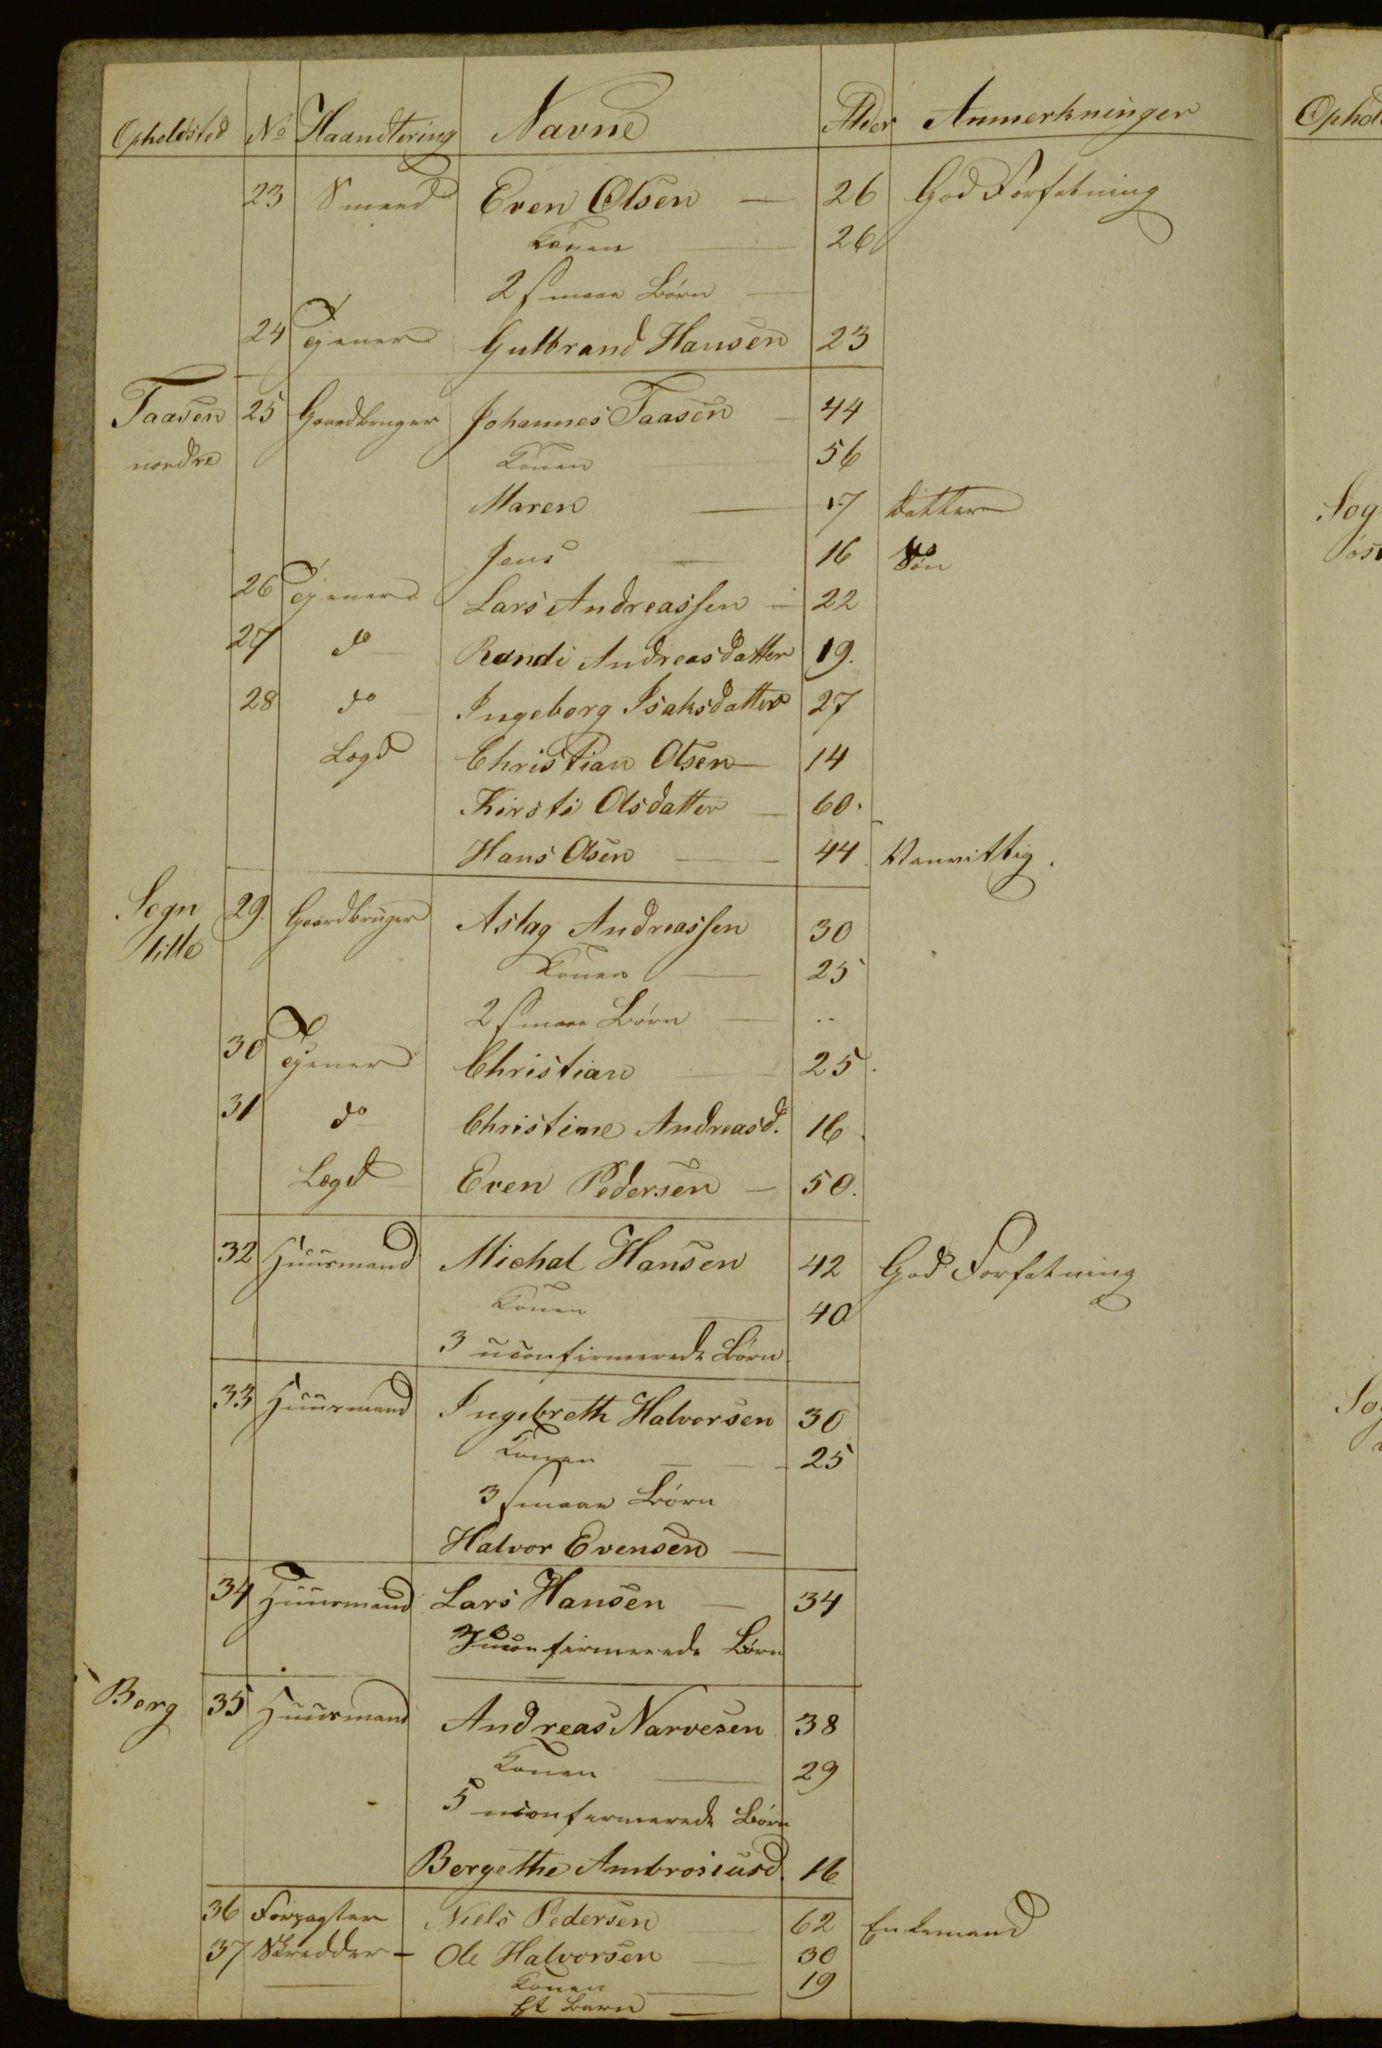 Opholdsted No Haandtering Navne Alder Anmerkninger
23 Smeed Even Olsen — 26 God Forfatning
Konen — 26
2 smaae Børn —
24 Tjener Gulbrand Hansen 23
Taasen 25 Gaardbruger Johannes Taasen — 44
nordre Konen — 56
Maren — 17 datter
Jens — 16 Søn
26 Tjener Lars Andreassen — 22
27 do Randi Andreasdatter 19.
28 do Ingeborg Isaksdatter 27
Lægd Christian Olsen — 14
Kirsti Olsdatter — 60.
Hans Olsen — 44 Vanvittig.
Sogn 29. Gaardbruger Aslag Andreassen 30
lille Konen — 25
2 smaae Børn — ..
30 Tjener Christian — 25.
31 do Christine Andreasd. 16.
Lægd Even Pedersen — 50.
32 Huusmand Michal Hansen 42 God Forfatning
Konen — 40
3 uconfirmerede Børn
33 Huusmand Ingebreth Halvorsen 30
Konen — 25
3 smaae Børn
Halvor Evensen —
34 Huusmand Lars Hansen — 34
uconfirmerede Børn
Berg 35 Huusmand Andreas Narvesen 38
Konen — 29
5 uconfirmerede Børn
Bergethe Ambrosiusd. 16
36 Forpagter Niels Pedersen 62 Enkemand
37 Skredder — Ole Halvorsen — 30
Konen — 19
Et Barn —
Ophol
Sog
øs
So